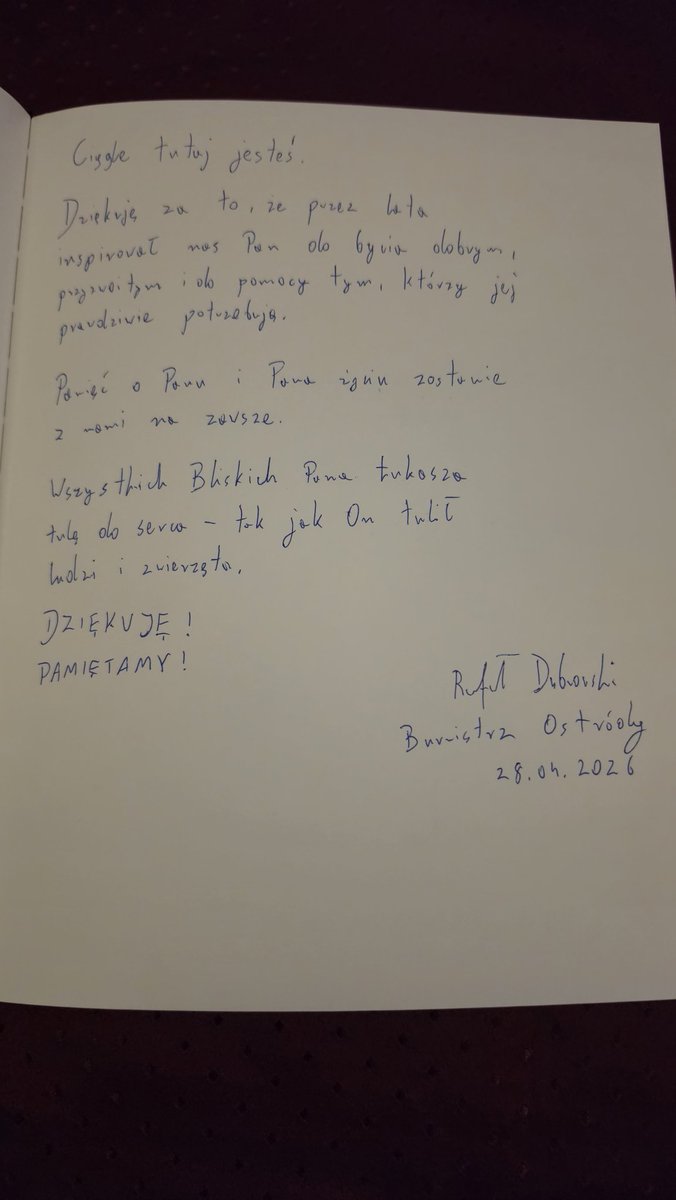 Ciągle tutaj jesteś.
Dziękuję za to, że przez lata
inspirował nas Pan do bycia dobrym,
przyzwoitym i do pomocy tym, którzy jej
prawdziwie potrzebują.
Pamięć o Panu i Pana życiu zostanie
z nami na zawsze.
Wszystkich Bliskich Pana Łukasza
tulę do serca – tak jak On tulił
ludzi i zwierzęta.
DZIĘKUJĘ!
PAMIĘTAMY!
Rafał Dąbrowski
Burmistrz Ostródy
28.04.2026